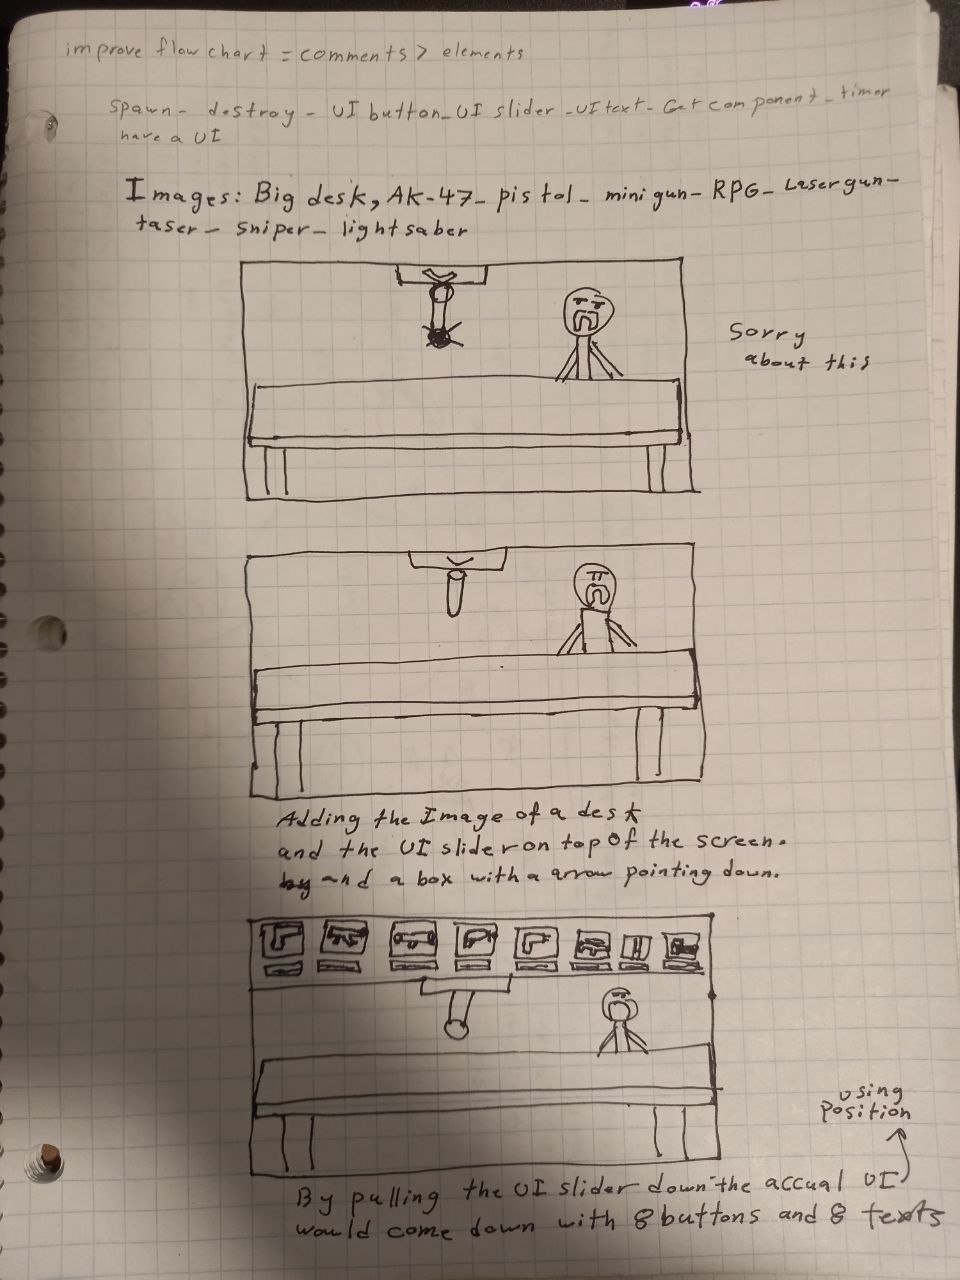 improve flow chart = comments > elements
spawn - destroy - UI button - UI slider - UI text - Get component - timer
have a UI
Images: Big desk, AK-47 - pistol - minigun - RPG - Laser gun -
taser - sniper - lightsaber
Sorry
about this
Adding the Image of a desk
and the UI slider on top of the screen.
and a box with a arrow pointing down.
using
Position
By pulling the UI slider down the accual UI
would come down with 8 buttons and 8 texts